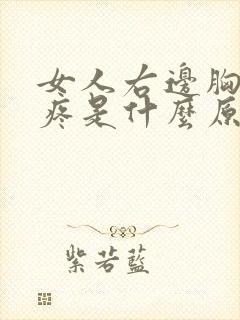 女人右邊胸
疼是什麼原
紫若藍